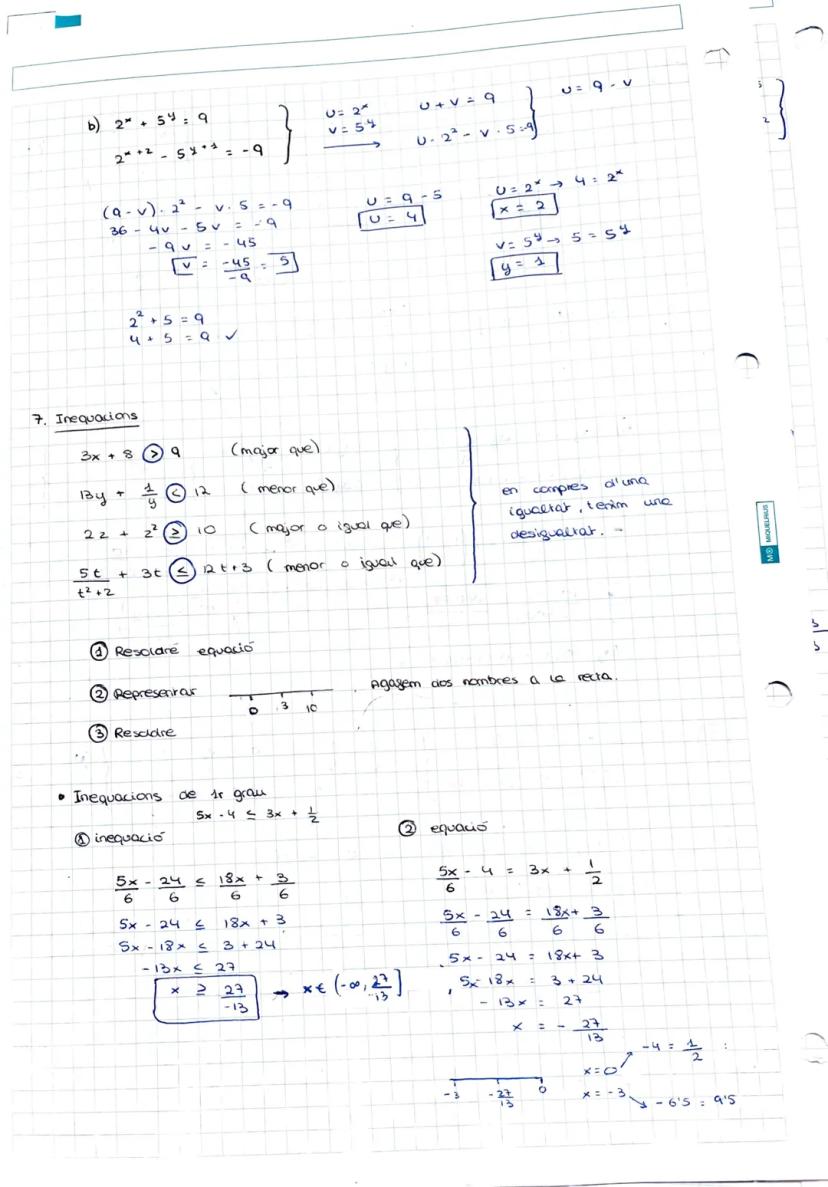 b) 2ˣ + 5ʸ = 9
2ˣ⁺² - 5ʸ⁺¹ = -9
U = 2ˣ
V = 5ʸ
U + V = 9
U · 2² - V · 5 = -9
U = 9 - V
(9 - V) · 2² - V · 5 = -9
36 - 4V - 5V = -9
- 9V = - 45
V = -45/-9 = 5
U = 9 - 5
U = 4
U = 2ˣ → 4 = 2ˣ
x = 2
V = 5ʸ → 5 = 5ʸ
y = 1
2² + 5 = 9
4 + 5 = 9 ✓
7. Inequacions
3x + 8 > 9 (major que)
13y + 1/y < 12 (menor que)
2z + z² ≥ 10 (major o igual que)
5t/t²+2 + 3t ≤ 12t+3 (menor o igual que)
en compres d'una
igualtat, tenim una
desigualtat.
① Resoldre equació
② Representar 0 3 10 Agafem dos nombres a la recta.
③ Resoldre
• Inequacions de 1r grau
5x - 4 ≤ 3x + 1/2
① inequació
5x/6 - 24/6 ≤ 18x/6 + 3/6
5x - 24 ≤ 18x + 3
5x - 18x ≤ 3 + 24
-13x ≤ 27
x ≥ 27/-13 → x ∈ (-∞, 27/-13]
② equació
5x/6 - 4 = 3x + 1/2
5x/6 - 24/6 = 18x/6 + 3/6
5x - 24 = 18x + 3
5x - 18x = 3 + 24
- 13x = 27
x = - 27/13
-3 -27/13 0
x = 0 ↗ -4 = 1/2
x = -3 ↘ -6'5 = 9'5
MR MIQUELRIUS